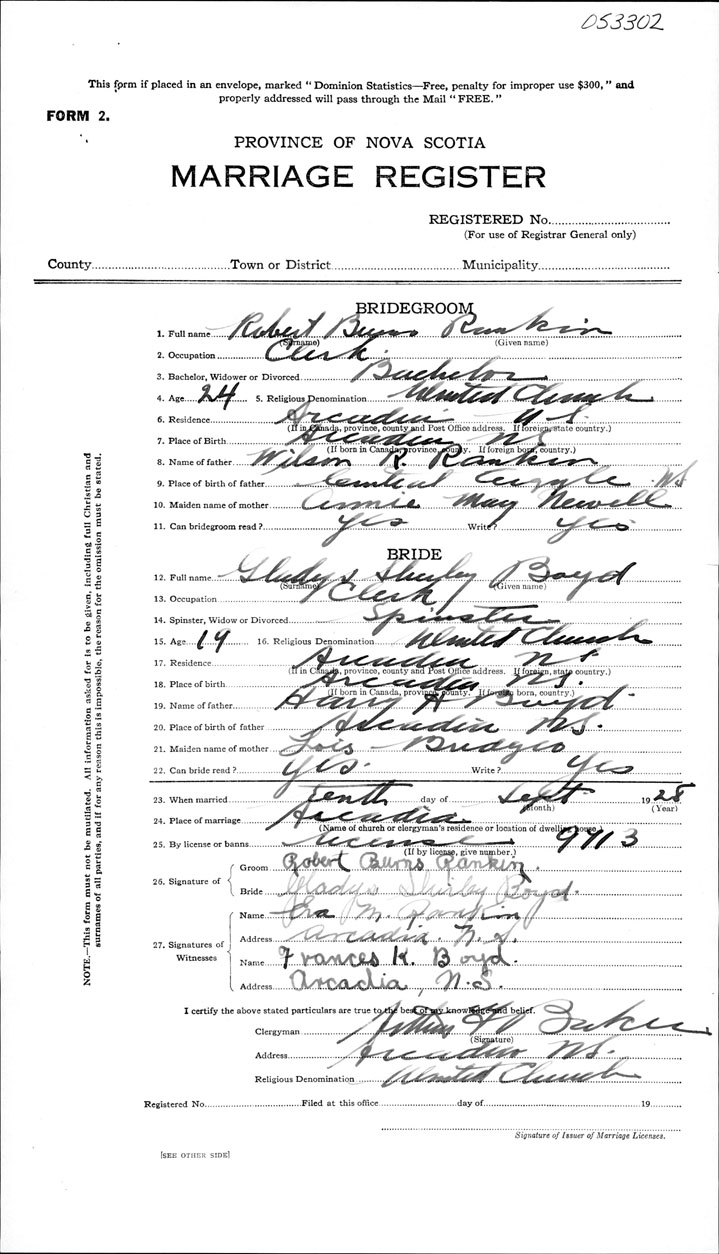 053302
This form if placed in an envelope, marked "Dominion Statistics—Free, penalty for improper use $300," and
properly addressed will pass through the Mail "FREE."
FORM 2.
PROVINCE OF NOVA SCOTIA
MARRIAGE REGISTER
REGISTERED No.
(For use of Registrar General only)
County Town or District Municipality
BRIDEGROOM
1. Full name Robert Burns Rankin
(Surname) (Given name)
2. Occupation Clerk
3. Bachelor, Widower or Divorced Bachelor
4. Age 24 5. Religious Denomination United Church
6. Residence Arcadia N.S.
(If in Canada, province, county and Post Office address. If foreign, state country.)
7. Place of Birth Arcadia NS
(If born in Canada, province, county. If foreign born, country.)
8. Name of father Wilson R. Rankin
9. Place of birth of father Central Argyle N.S
10. Maiden name of mother Annie May Newell
11. Can bridegroom read? Yes Write? Yes
BRIDE
12. Full name Gladys Shirley Boyd
(Surname) (Given name)
13. Occupation Clerk
14. Spinster, Widow or Divorced Spinster
15. Age 19 16. Religious Denomination United Church
17. Residence Arcadia N S
(If in Canada, province, county and Post Office address. If foreign, state country.)
18. Place of birth Arcadia N.S.
(If born in Canada, province, county. If foreign born, country.)
19. Name of father Harry A Boyd
20. Place of birth of father Arcadia N.S.
21. Maiden name of mother Lois Bridgeo
22. Can bride read? Yes. Write? Yes
23. When married Tenth day of Sept 1928
(Month) (Year)
24. Place of marriage Arcadia
(Name of church or clergyman's residence or location of dwelling house.)
25. By license or banns license 9113
(If by license, give number.)
26. Signature of
Groom Robert Burns Rankin.
Bride Gladys Shirley Boyd.
27. Signatures of Witnesses
Name M. Rankin
Address Arcadia. N.S.
Name Frances K. Boyd.
Address Arcadia, N.S.
I certify the above stated particulars are true to the best of my knowledge and belief.
Clergyman Baker
(Signature)
Address Arcadia N.S.
Religious Denomination United Church
Registered No. Filed at this office day of 19
Signature of Issuer of Marriage Licenses.
[SEE OTHER SIDE]
NOTE.—This form must not be mutilated. All information asked for is to be given, including full Christian and
surnames of all parties, and if for any reason this is impossible, the reason for the omission must be stated.